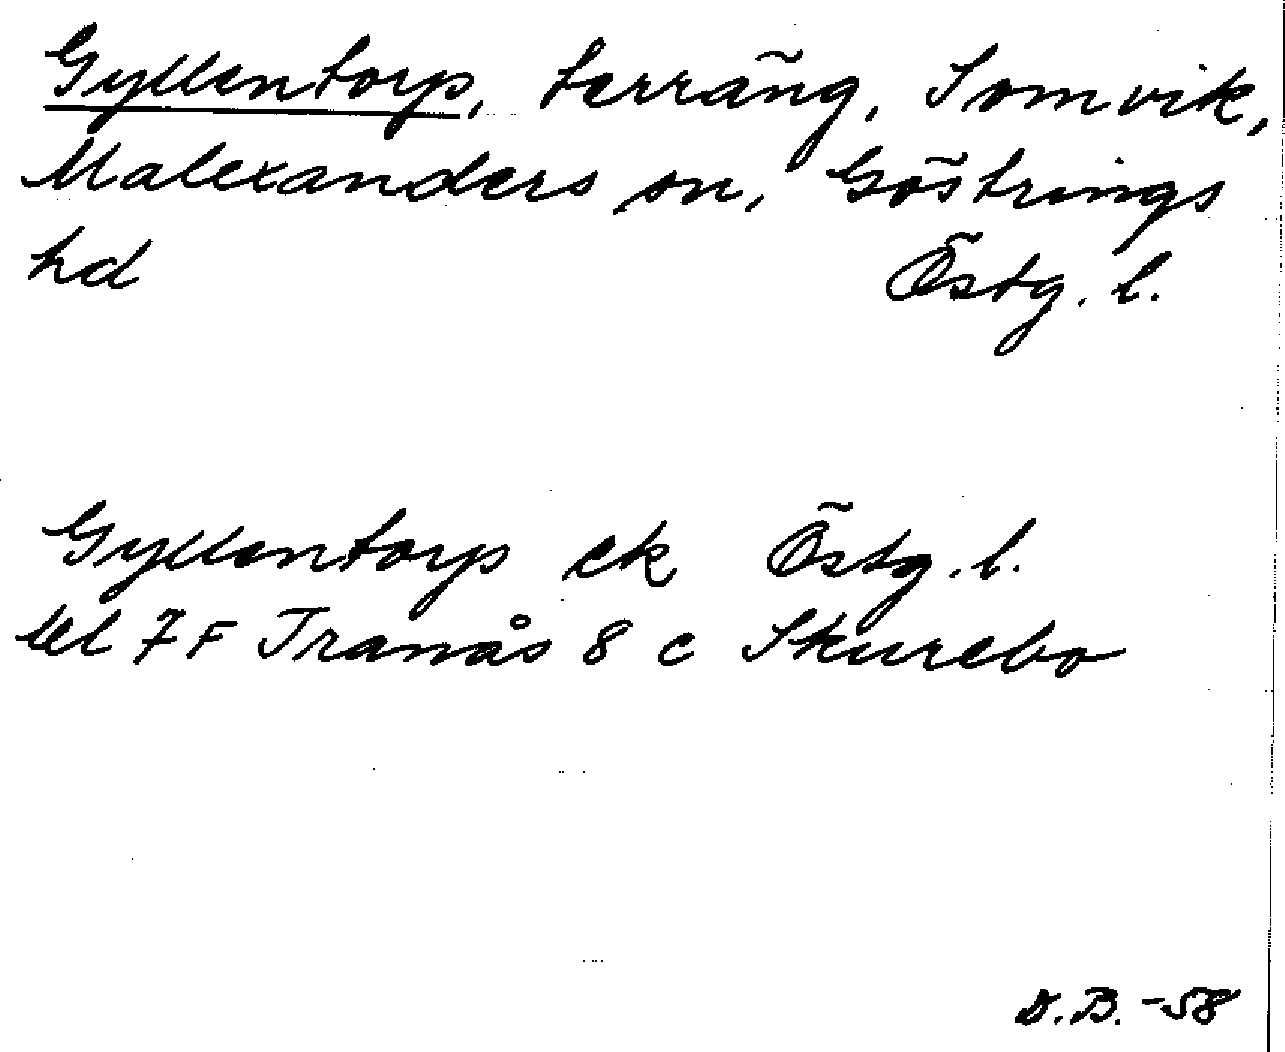 Gyllentorp, terräng, Somvik,
Malexanders sn, Göstrings
hd Östg. l.
Gyllentorp ek Östg. l.
del 7F Tranås 8 c Skurebo
D.B. -58